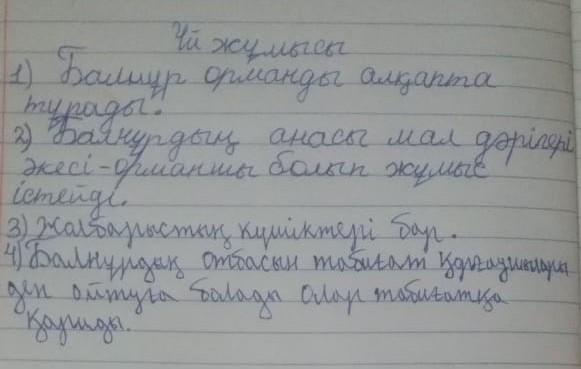 Үй жұмысы
1) Балнұр орманды алқапта
тұрады.
2) Балнұрдың анасы мал дәрігері
әкесі-орманшы болып жұмыс
істейді.
3) Жалбарыстың күшіктері бар.
4) Балнұрдың отбасын табиғат қорғаушылары
деп айтуға болады олар табиғатқа
қарайды.